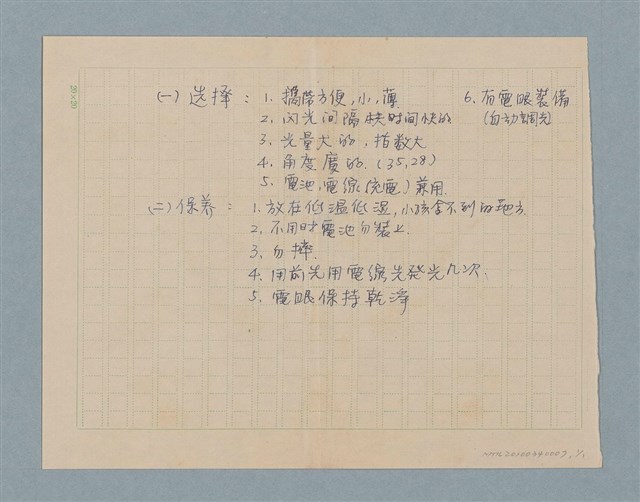 (一) 选择： 1. 攜帶方便，小，薄. 6. 有電眼装備
2. 闪光间隔 时间快的 (自动調光)
3. 光量大的，指数大
4. 角度廣的. (35,28)
5. 電池，電線(充電)兼用.
(二) 保养： 1. 放在低温低湿，小孩拿不到的地方.
2. 不用时電池勿裝上.
3. 勿摔.
4. 用前先用電線先発光几次.
5. 電眼保持乾淨
20×20